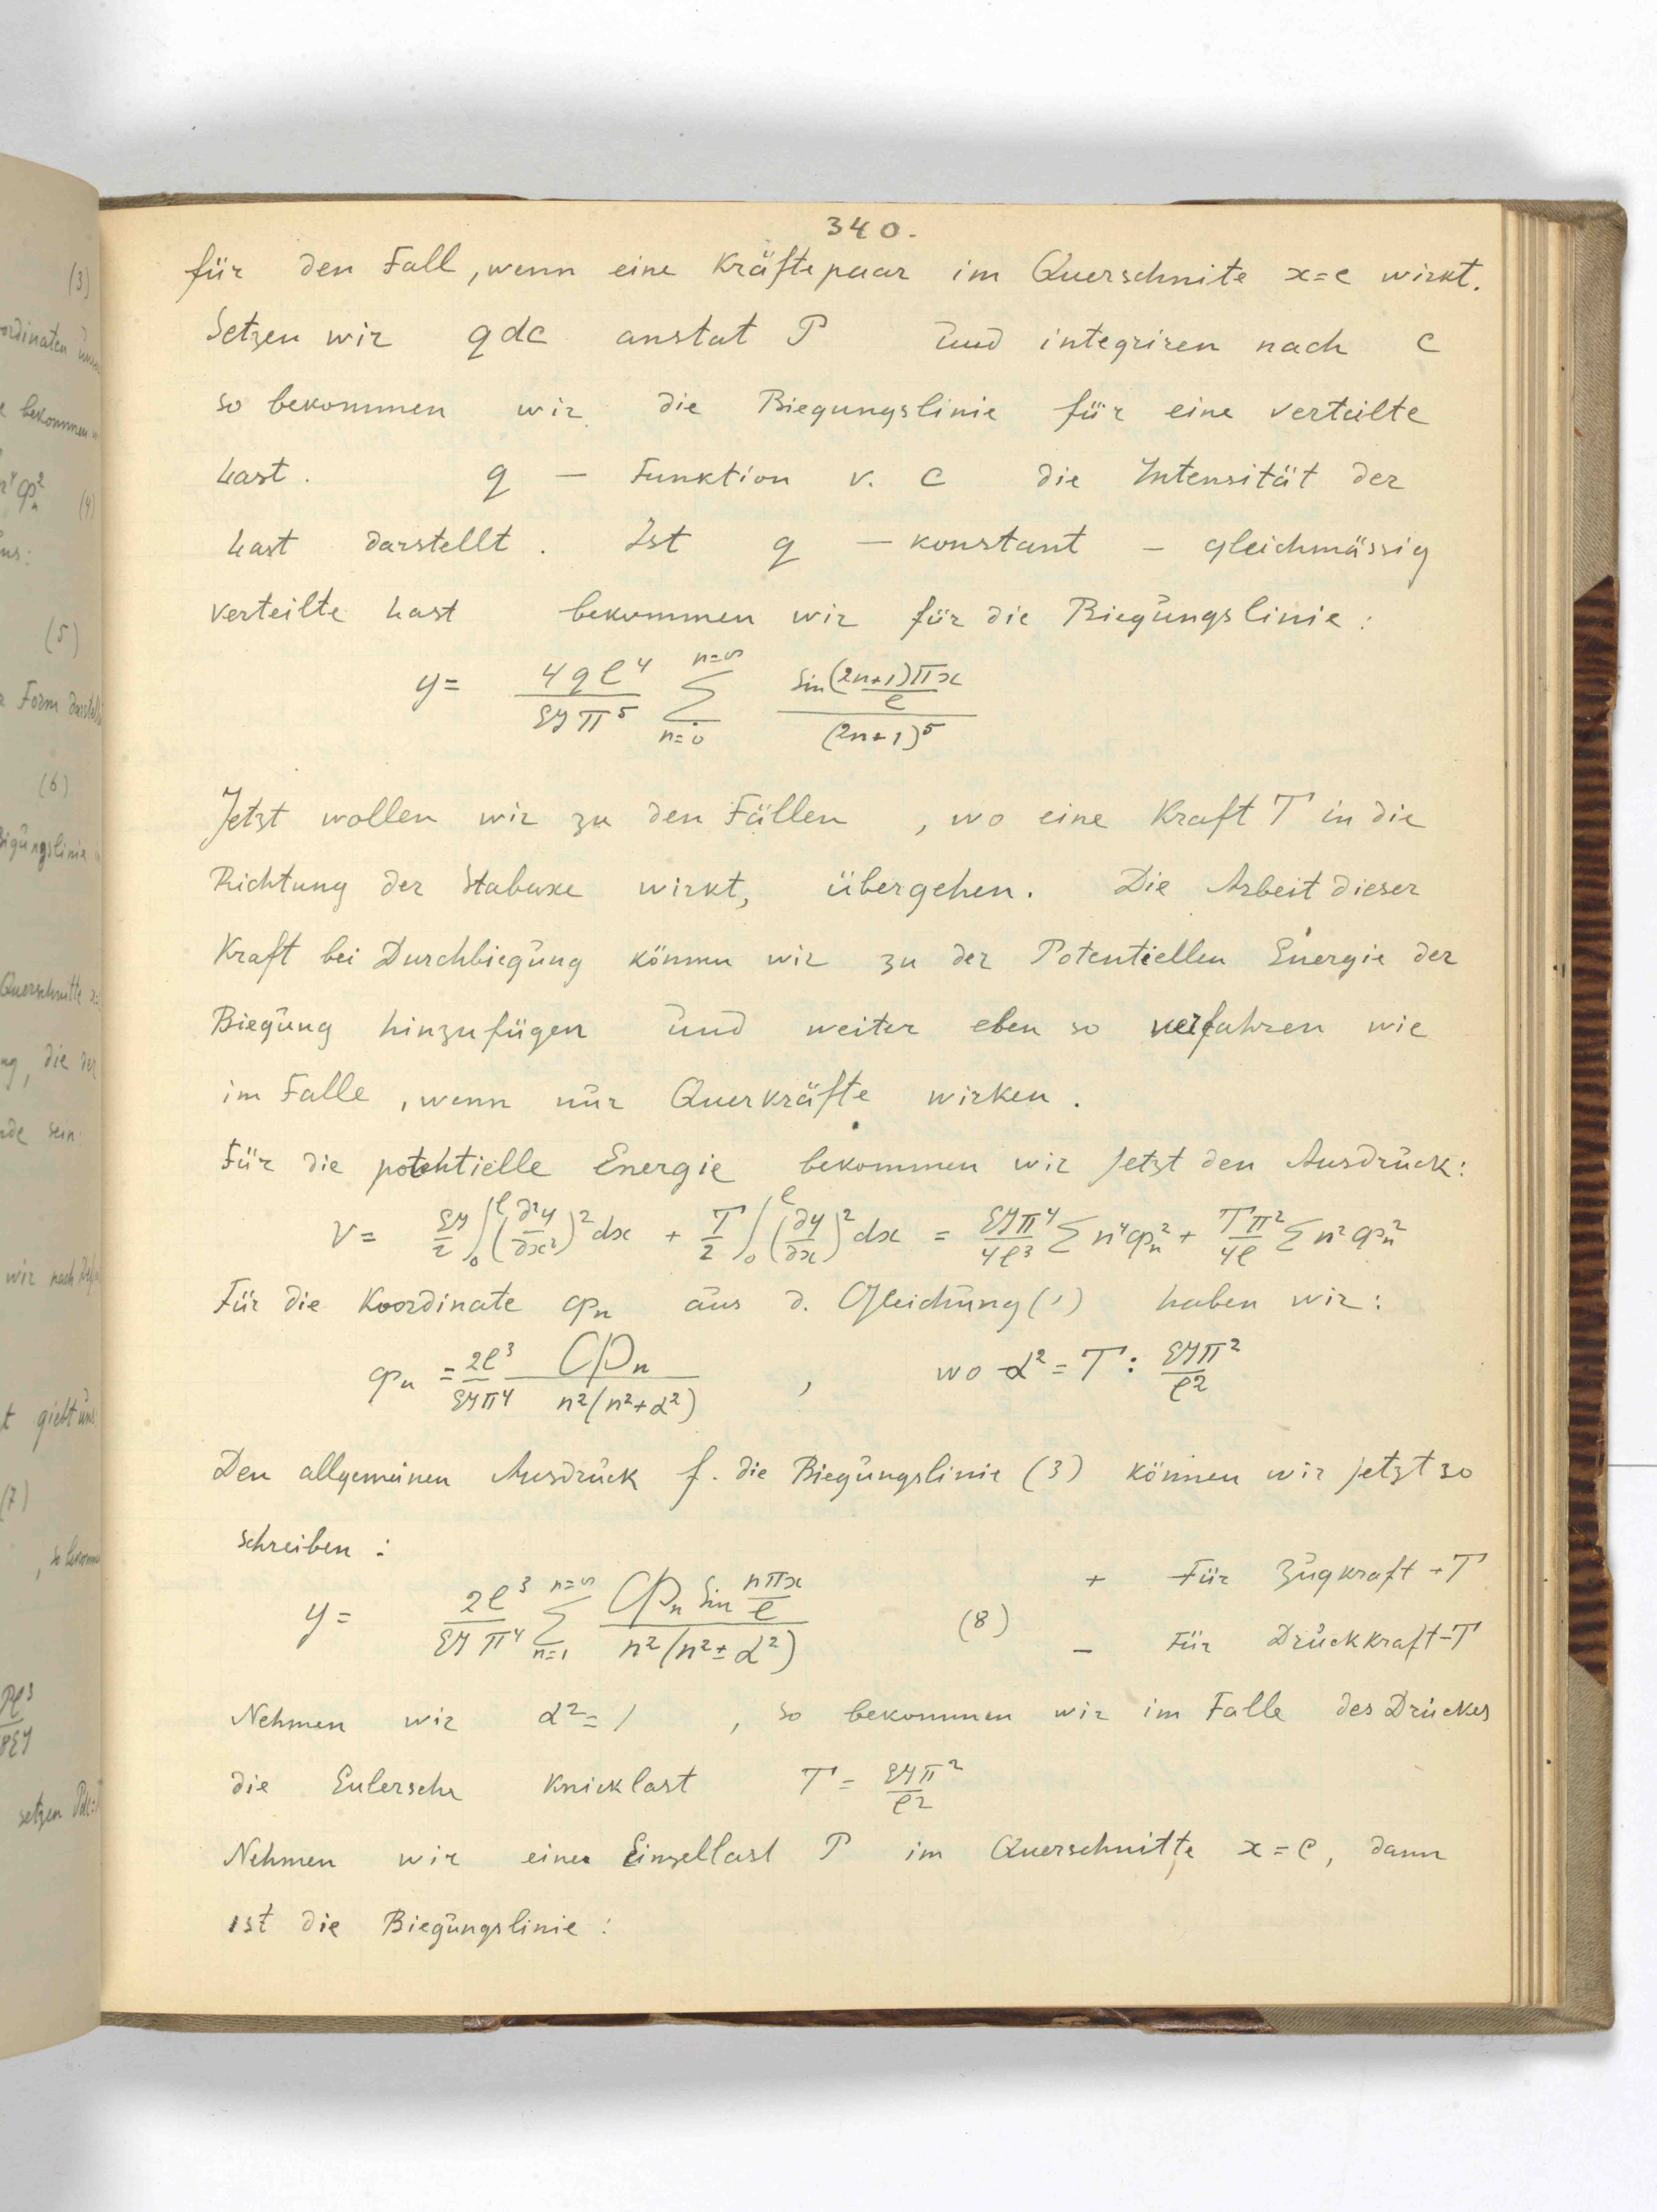 340.
für den Fall, wenn eine Kräftepaar im Querschnite x=c wirkt.
Setzen wir qdc anstat P und integriren nach c
so bekommen wir die Biegungslinie für eine verteilte
Last. q — Funktion v. c die Intensität der
Last darstellt. Ist q — konstant — gleichmässig
verteilte Last bekommen wir für die Biegungslinie:
y = \frac{4ql^4}{EJπ^5} \sum_{n=0}^{n=∞} \frac{\sin\frac{(2n+1)πx}{l}}{(2n+1)^5}
Jetzt wollen wir zu den Fällen, wo eine Kraft T in die
Richtung der Stabaxe wirkt, übergehen. Die Arbeit dieser
Kraft bei Durchbiegung können wir zu der Potentiellen Energie der
Biegung hinzufügen und weiter eben so verfahren wie
im Falle, wenn nur Querkräfte wirken.
Für die potentielle Energie bekommen wir jetzt den Ausdruck:
V = \frac{EJ}{2} \int_0^l (\frac{∂^2y}{∂x^2})^2 dx + \frac{T}{2} \int_0^l (\frac{∂y}{∂x})^2 dx = \frac{EJπ^4}{4l^3} Σ n^4 φ_n^2 + \frac{Tπ^2}{4l} Σ n^2 φ_n^2
Für die Koordinate φ_n aus d. Gleichung (1) haben wir:
φ_n = \frac{2l^3}{EJπ^4} \frac{Φ_n}{n^2(n^2+α^2)}, wo α^2 = T : \frac{EJπ^2}{l^2}
Den allgemeinen Ausdruck f. die Biegungslinie (3) können wir jetzt so
schreiben:
+ Für Zugkraft +T
y = \frac{2l^3}{EJπ^4} \sum_{n=1}^{n=∞} \frac{Φ_n \sin\frac{nπx}{l}}{n^2(n^2±α^2)} (8)
– Für Druckkraft –T
Nehmen wir α^2 = 1, so bekommen wir im Falle des Druckes
die Eulersche Knicklast T = \frac{EJπ^2}{l^2}
Nehmen wir eine Einzellast P im Querschnitte x = c, dann
ist die Biegungslinie: